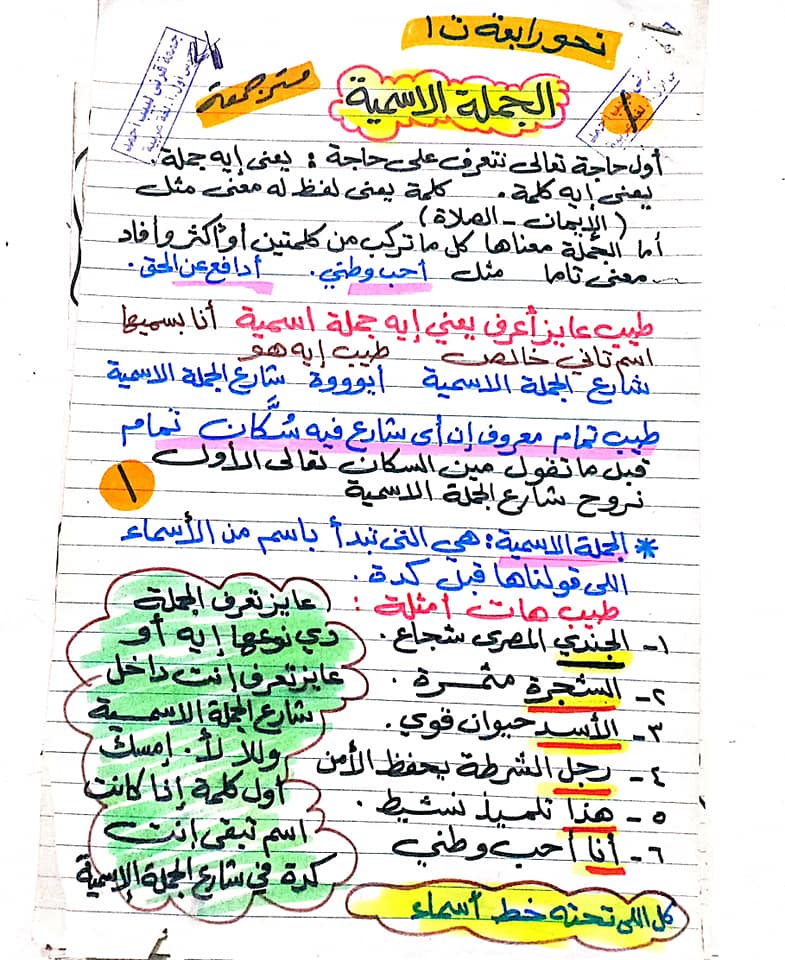 نحو رابعة ت١
الجملة الاسمية
مترجمة
١
أول حاجة تعالى نتعرف على حاجة : يعني إيه جملة.
يعني إيه كلمة. كلمة يعني لفظ له معنى مثل
(الإيمان - الصلاة)
أما الجملة معناها كل ما تركب من كلمتين أو أكثر وأفاد
معنى تاما مثل أحب وطني. أدافع عن الحق.
طيب عايز أعرف يعني إيه جملة اسمية أنا بسميها
اسم تاني خالص طيب إيه هو
شارع الجملة الاسمية أيوووة شارع الجملة الاسمية
طيب تمام معروف إن أى شارع فيه سُكَّان تمام
قبل ما تقول مين السكان تعالى الأول
نروح شارع الجملة الاسمية
١
* الجملة الاسمية : هي التى تبدأ باسم من الأسماء
اللى قولناها قبل كدة.
طيب هات أمثلة :
١- الجندي المصرى شجاع.
٢- الشجرة مثمرة.
٣- الأسد حيوان قوي.
٤- رجل الشرطة يحفظ الأمن
٥- هذا تلميذ نشيط.
٦- أنا أحب وطني
عايز تعرف الجملة
دي نوعها إيه أو
عايز تعرف إنت داخل
شارع الجملة الاسمية
وللا لأ. إمسك
أول كلمة إذا كانت
اسم تبقى إنت
كدة في شارع الجملة الإسمية
كل اللى تحته خط أسماء